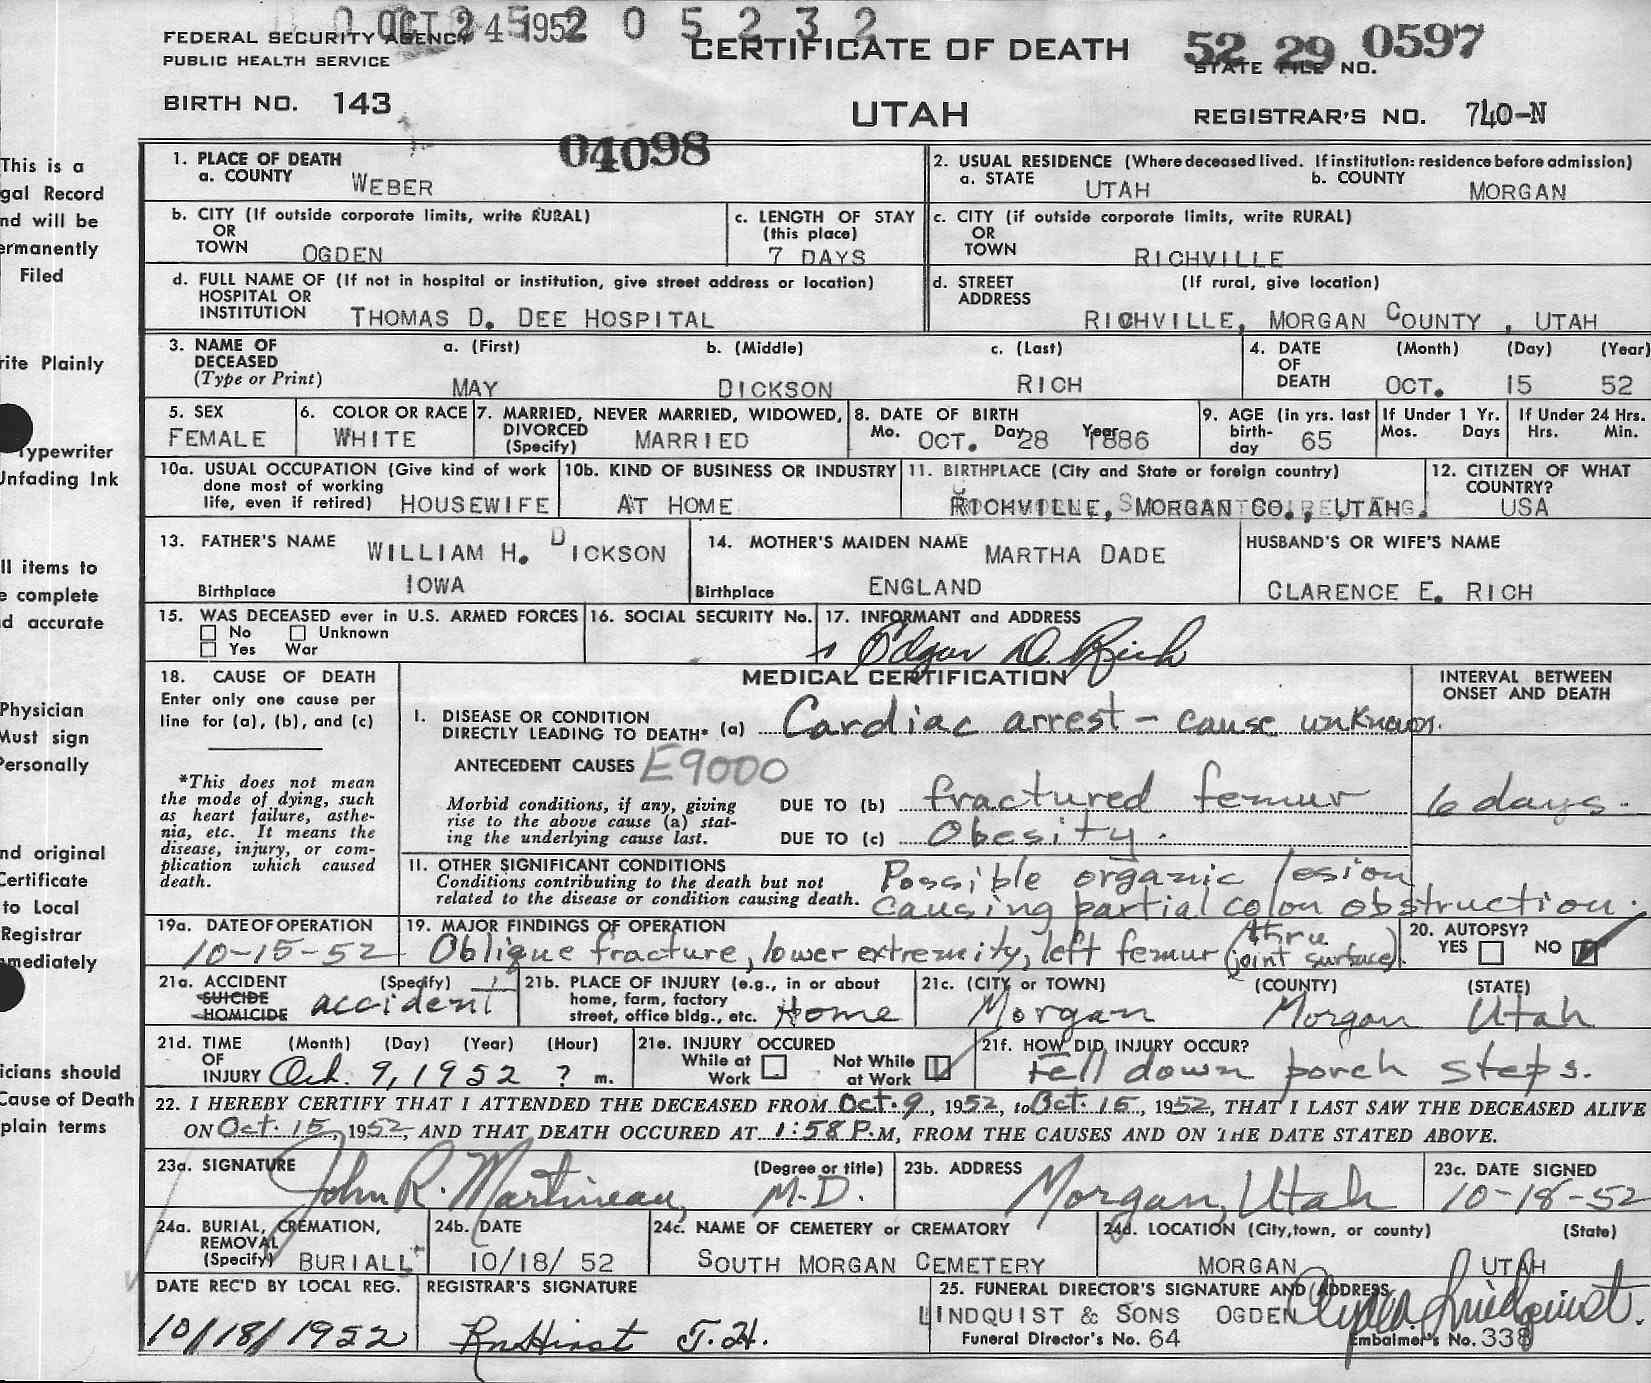 OCT 24 1952 2 0 5 2 3 2
FEDERAL SECURITY AGENCY
PUBLIC HEALTH SERVICE
CERTIFICATE OF DEATH
52 29 0597
STATE FILE NO.
BIRTH NO. 143
UTAH
REGISTRAR'S NO. 740-N
04098
This is a
gal Record
nd will be
ermanently
Filed
rite Plainly
Typewriter
Unfading Ink
ll items to
e complete
d accurate
Physician
Must sign
Personally
nd original
Certificate
to Local
Registrar
mmediately
icians should
Cause of Death
plain terms
1. PLACE OF DEATH
a. COUNTY WEBER
2. USUAL RESIDENCE (Where deceased lived. If institution: residence before admission)
a. STATE UTAH b. COUNTY MORGAN
b. CITY (If outside corporate limits, write RURAL)
OR
TOWN OGDEN
c. LENGTH OF STAY
(this place)
7 DAYS
c. CITY (if outside corporate limits, write RURAL)
OR
TOWN RICHVILLE
d. FULL NAME OF (If not in hospital or institution, give street address or location)
HOSPITAL OR
INSTITUTION THOMAS D. DEE HOSPITAL
d. STREET (If rural, give location)
ADDRESS
RICHVILLE, MORGAN COUNTY , UTAH
3. NAME OF DECEASED
(Type or Print)
a. (First) b. (Middle) c. (Last)
MAY DICKSON RICH
4. DATE OF DEATH (Month) (Day) (Year)
OCT. 15 52
5. SEX
FEMALE
6. COLOR OR RACE
WHITE
7. MARRIED, NEVER MARRIED, WIDOWED,
DIVORCED
(Specify) MARRIED
8. DATE OF BIRTH
Mo. OCT. Day 28 Year 1886
9. AGE (in yrs. last
birth-
day 65
If Under 1 Yr.
Mos. Days
If Under 24 Hrs.
Hrs. Min.
10a. USUAL OCCUPATION (Give kind of work
done most of working
life, even if retired) HOUSEWIFE
10b. KIND OF BUSINESS OR INDUSTRY
AT HOME
11. BIRTHPLACE (City and State or foreign country)
RICHVILLE, MORGAN CO., UTAH.
12. CITIZEN OF WHAT
COUNTRY?
USA
13. FATHER'S NAME WILLIAM H. DICKSON
Birthplace IOWA
14. MOTHER'S MAIDEN NAME MARTHA DADE
Birthplace ENGLAND
HUSBAND'S OR WIFE'S NAME
CLARENCE E. RICH
15. WAS DECEASED ever in U.S. ARMED FORCES
No Unknown
Yes War
16. SOCIAL SECURITY No.
17. INFORMANT and ADDRESS
Edgar D. Rich
18. CAUSE OF DEATH
Enter only one cause per
line for (a), (b), and (c)
*This does not mean
the mode of dying, such
as heart failure, asthe-
nia, etc. It means the
disease, injury, or com-
plication which caused
death.
MEDICAL CERTIFICATION
INTERVAL BETWEEN
ONSET AND DEATH
I. DISEASE OR CONDITION
DIRECTLY LEADING TO DEATH* (a) Cardiac arrest - cause unknown.
ANTECEDENT CAUSES E9000
Morbid conditions, if any, giving
rise to the above cause (a) stat-
ing the underlying cause last.
DUE TO (b) fractured femur 6 days.
DUE TO (c) Obesity.
II. OTHER SIGNIFICANT CONDITIONS
Conditions contributing to the death but not
related to the disease or condition causing death.
Possible organic lesion
causing partial colon obstruction.
19a. DATE OF OPERATION
10-15-52
19. MAJOR FINDINGS OF OPERATION
Oblique fracture, lower extremity, left femur (thru joint surface).
20. AUTOPSY?
YES NO
21a. ACCIDENT (Specify)
SUICIDE
HOMICIDE accident
21b. PLACE OF INJURY (e.g., in or about
home, farm, factory
street, office bldg., etc. Home
21c. (CITY or TOWN) (COUNTY) (STATE)
Morgan Morgan Utah
21d. TIME (Month) (Day) (Year) (Hour)
OF
INJURY Oct. 9, 1952 ? m.
21e. INJURY OCCURED
While at Work Not While at Work
21f. HOW DID INJURY OCCUR?
Fell down porch steps.
22. I HEREBY CERTIFY THAT I ATTENDED THE DECEASED FROM Oct. 9, 1952, to Oct. 15, 1952, THAT I LAST SAW THE DECEASED ALIVE
ON Oct. 15, 1952, AND THAT DEATH OCCURED AT 1:58 P.M, FROM THE CAUSES AND ON THE DATE STATED ABOVE.
23a. SIGNATURE (Degree or title)
John R. Martineau, M.D.
23b. ADDRESS
Morgan, Utah
23c. DATE SIGNED
10-18-52
24a. BURIAL, CREMATION,
REMOVAL
(Specify) BURIALL
24b. DATE
10/18/ 52
24c. NAME OF CEMETERY or CREMATORY
SOUTH MORGAN CEMETERY
24d. LOCATION (City, town, or county) (State)
MORGAN UTAH
DATE REC'D BY LOCAL REG.
10/18/1952
REGISTRAR'S SIGNATURE
25. FUNERAL DIRECTOR'S SIGNATURE AND ADDRESS
LINDQUIST & SONS OGDEN
Funeral Director's No. 64 Embalmer's No. 338